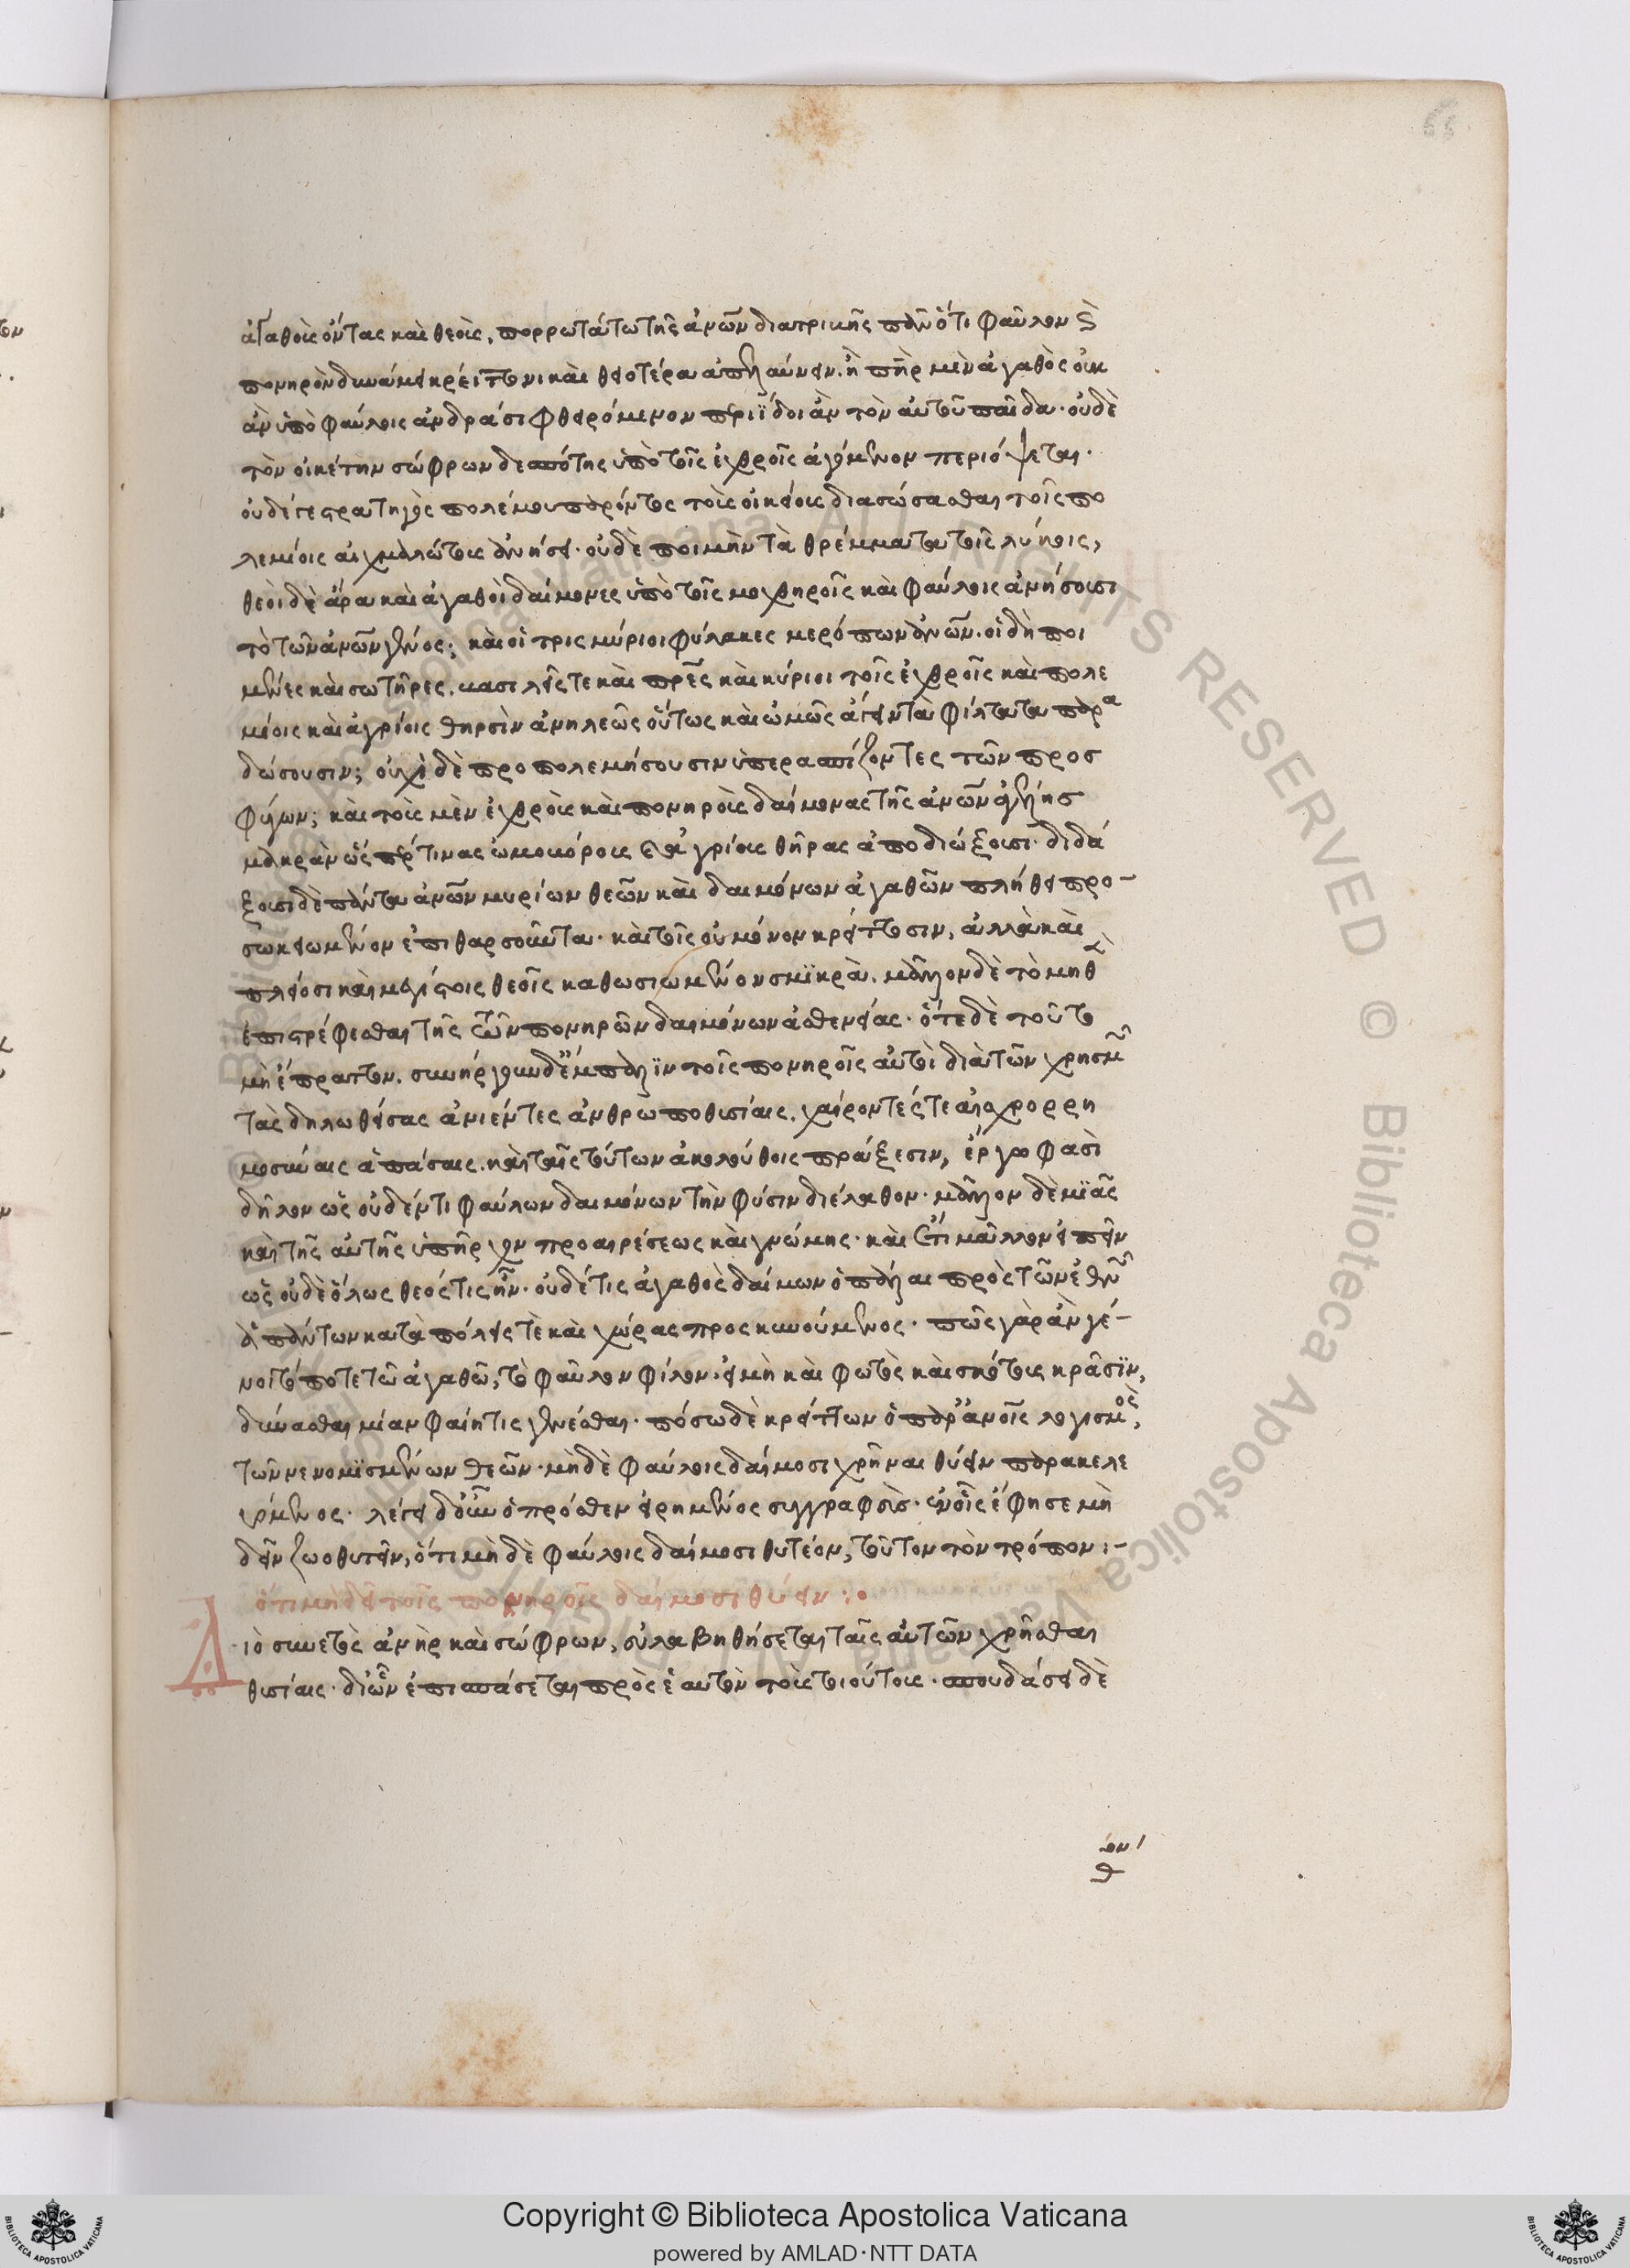 ἀγαθοὺς ὄντας καὶ θεοὺς, πορρωτάτω τῆς ἀνῶν διατριβῆς πᾶν ὅτι φαῦλον καὶ
πονηρὸν δυνάμει κρείττονι καὶ θειοτέρα ἀπελαύνειν. ἢ πὴρ μὲν ἀγαθὸς οὐκ
ἂν ὑπὸ φαύλοις ἀνδράσι φθειρόμενον περιΐδοι ἂν τὸν αὐτοῦ παῖδα· οὐδὲ
τὸν οἰκέτην σώφρων δεσπότης ὑπὸ τοῖς ἐχθροῖς ἀγόμενον περιόψεται·
οὐδέ γε στρατηγὸς πολέμου παρόντος τοὺς οἰκείους διασώσασθαι τοῖς πο
λεμίοις αἰχμαλώτους ἀνήσει· οὐδὲ ποιμὴν τὰ θρέμματα τοῖς λύκοις,
θεοὶ δὲ ἄρα καὶ ἀγαθοὶ δαίμονες ὑπὸ τοῖς μοχθηροῖς καὶ φαύλοις ἀνήσουσι
τὸ τῶν ἀνῶν γένος; καὶ οἱ τρις μύριοι φύλακες μερόπων ἀνῶν. οἱ δὴ ποι
μένες καὶ σωτῆρες. βασιλεῖς τε καὶ πρες καὶ κύριοι τοῖς ἐχθροῖς καὶ πολε
μίοις καὶ ἀγρίοις θηρσὶν ἀνηλεῶς οὕτως καὶ ὠμῶς ἄγειν τὰ φίλτατα παρα
δώσουσιν; οὐχὶ δὲ προπολεμήσουσιν ὑπερασπίζοντες τῶν προσ
φύγων; καὶ τοὺς μὲν ἐχθροὺς καὶ πονηροὺς δαίμονας τῆς ἀνῶν ἀγέλης
μακρὰν ὥσπέρ τινας ὠμοβόρους καὶ ἀγρίους θῆρας ἀποδιώξουσι· διδά
ξουσι δὲ πάντα ἀνῶν μυρίων θεῶν καὶ δαιμόνων ἀγαθῶν πλήθει προ
σωκειωμένον ἐπιθαρσοῦντα· καὶ τοῖς οὐ μόνον κρείττοσιν, ἀλλὰ καὶ
πλείοσι καὶ μεγίστοις θεοῖς καθωσιωμένον σμϊκρὰ. μᾶλλον δὲ τὸ μηθὲν
ἐπιστρέφεσθαι τῆς τῶν πονηρῶν δαιμόνων ἀσθενείας· ὅτε δὲ τοῦτο
μὴ ἔπραττον. συνήργουν δ' ἔμπαλϊν τοῖς πονηροῖς αὐτοὶ διὰ τῶν χρησμῶν
τὰς δηλωθείσας ἀνιέντες ἀνθρωποθυσίαις. χαίροντές τε αἰσχρορρη
μοσύναις ἁπάσαις. καὶ ταῖς τούτων ἀκολούθοις πράξεσιν, ἔργω φασὶ
δῆλον ὡς οὐδέν τι φαύλων δαιμόνων τὴν φύσιν διέλαθον· μᾶλλον δὲ μϊᾶς
καὶ τῆς αὐτῆς ὑπῆρχον προαιρέσεως καὶ γνώμης· καὶ ἔτι μᾶλλον εἰπεῖν
ὡς οὐδὲ ὅλως θεός τις ἦν· οὐδέ τις ἀγαθὸς δαίμων ὁ πάλαι πρὸς τῶν ἐθνῶν
ἁπάντων κατὰ πόλεις τὲ καὶ χώρας προσκυνούμενος· πῶς γὰρ ἂν γέ
νοιτό ποτε τῶ ἀγαθῶ, τὸ φαῦλον φίλον· εἰ μὴ καὶ φωτὸς καὶ σκότους κρᾶσϊν,
δύνασθαι μίαν φαίη τις γενέσθαι· πόσω δὲ κρείττων ὁ παρ' ἀνοῖς λογισμὸς,
τῶν νενομϊσμένων θεῶν· μὴ δὲ φαύλοις δαίμοσι χρῆναι θύειν παρακελε
υόμενος· λέγει δ' οὖν ὁ πρόσθεν εἰρημένος συγγραφεὺς· ἐν οἷς ἔφησε μὴ
δεῖν ζωοθυτεῖν, ὅτι μὴ δὲ φαύλοις δαίμοσι θυτέον, τοῦτον τὸν τρόπον:-
ὅτι μὴ δεῖ τοῖς πονηροῖς δαίμοσι θύειν:
Διὸ συνετὸς ἀνὴρ καὶ σώφρων, εὐλαβηθήσεται ταῖς αὐτῶν χρῆσθαι
θυσίαις· δι' ὧν ἐπισπάσεται πρὸς ἑαυτὸν τοὺς τοιούτους· σπουδάσει δὲ
Copyright © Biblioteca Apostolica Vaticana
powered by AMLAD·NTT DATA